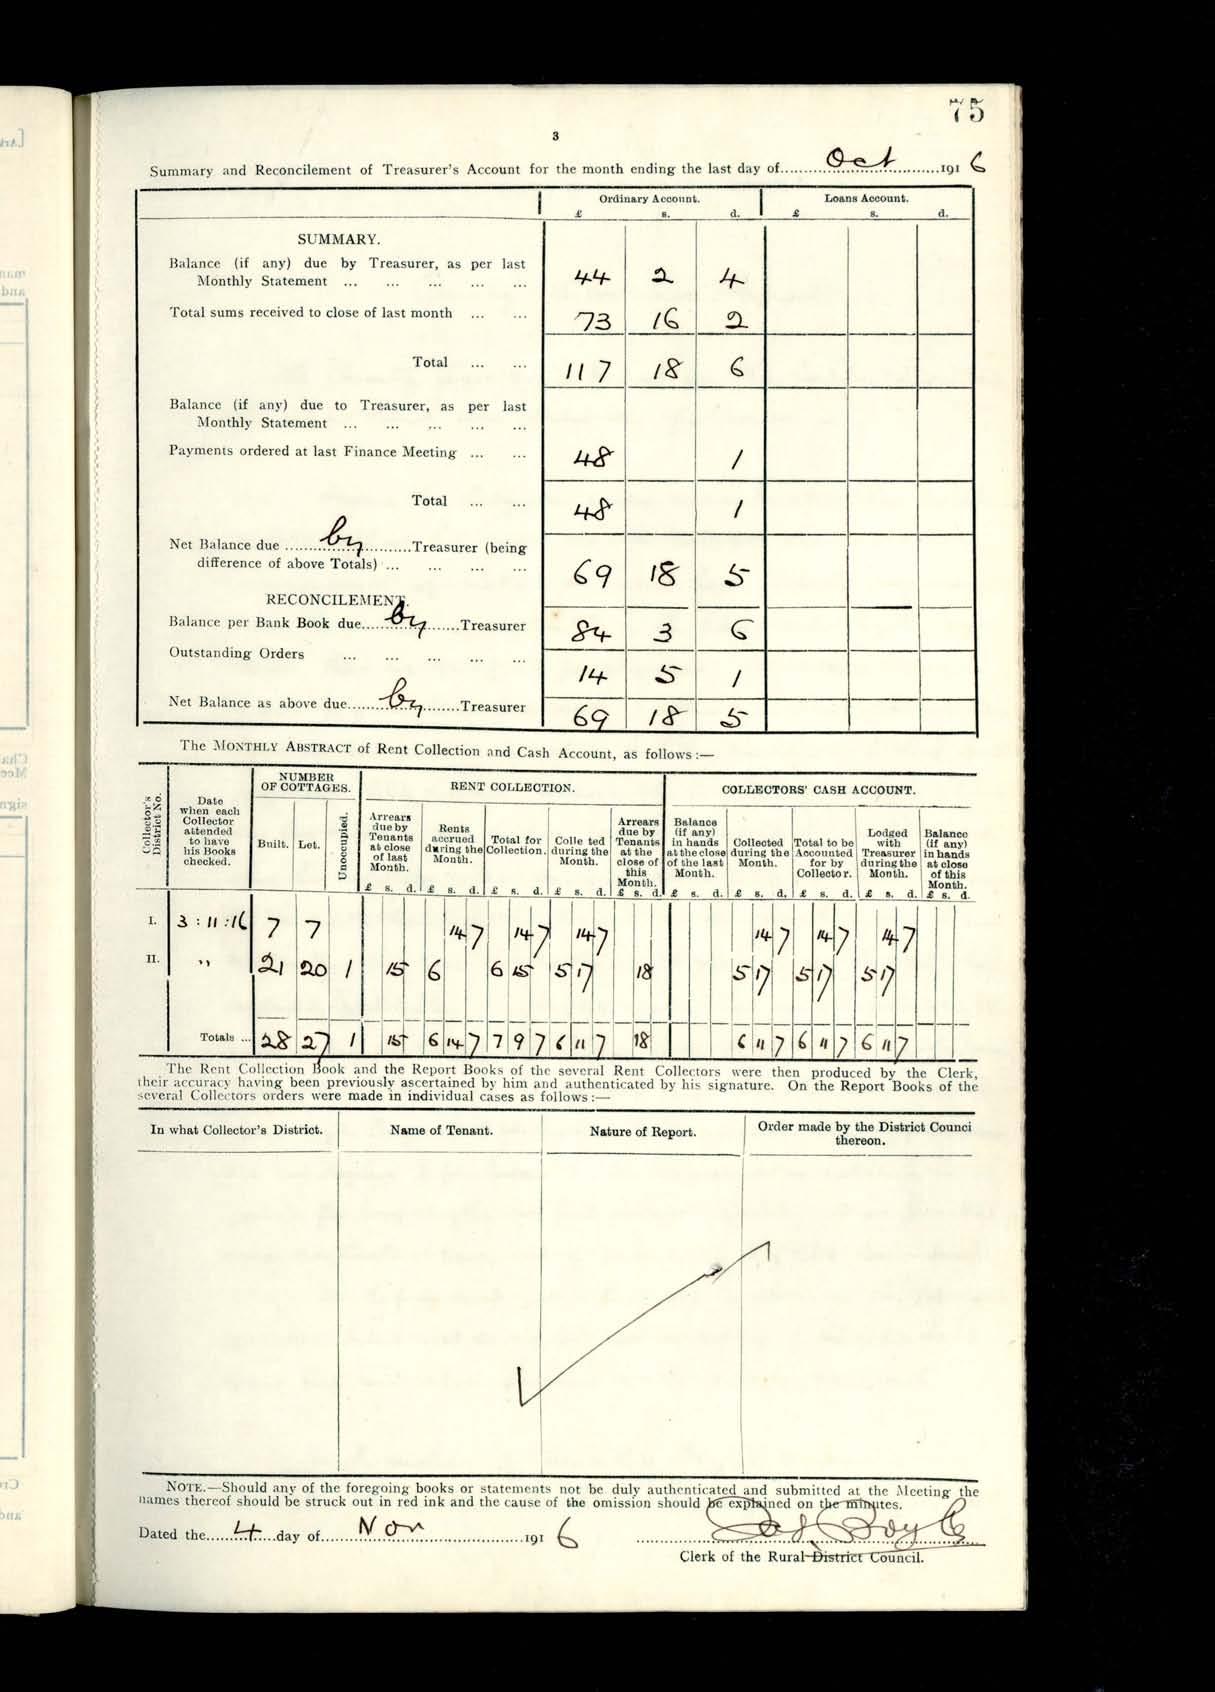 75
3
Summary and Reconcilement of Treasurer's Account for the month ending the last day of Oct 1916
Ordinary Account. Loans Account.
£ s. d. £ s. d.
SUMMARY.
Balance (if any) due by Treasurer, as per last
Monthly Statement ... ... ... ... ... 44 2 4
Total sums received to close of last month ... ... 73 16 2
Total ... ... 117 18 6
Balance (if any) due to Treasurer, as per last
Monthly Statement ... ... ... ... ...
Payments ordered at last Finance Meeting ... ... 48 1
Total ... ... 48 1
Net Balance due by Treasurer (being
difference of above Totals) ... ... ... ... 69 18 5
RECONCILEMENT.
Balance per Bank Book due by Treasurer 84 3 6
Outstanding Orders ... ... ... ... ... 14 5 1
Net Balance as above due by Treasurer 69 18 5
The MONTHLY ABSTRACT of Rent Collection and Cash Account, as follows:—
Collector's District No.
Date when each Collector attended to have his Books checked.
NUMBER OF COTTAGES.
Built. Let. Unoccupied.
RENT COLLECTION.
Arrears due by Tenants at close of last Month.
Rents accrued during the Month.
Total for Collection.
Colle ted during the Month.
Arrears due by Tenants at the close of this Month.
COLLECTORS' CASH ACCOUNT.
Balance (if any) in hands at the close of the last Month.
Collected during the Month.
Total to be Accounted for by Collector.
Lodged with Treasurer during the Month.
Balance (if any) in hands at close of this Month.
£ s. d. £ s. d. £ s. d. £ s. d. £ s. d. £ s. d. £ s. d. £ s. d. £ s. d. £ s. d.
I. 3:11:16 7 7 14 7 14 7 14 7 14 7 14 7 14 7
II. ,, 21 20 1 15 6 6 15 5 17 18 5 17 5 17 5 17
Totals ... 28 27 1 15 6 14 7 7 9 7 6 11 7 18 6 11 7 6 11 7 6 11 7
The Rent Collection Book and the Report Books of the several Rent Collectors were then produced by the Clerk,
their accuracy having been previously ascertained by him and authenticated by his signature. On the Report Books of the
several Collectors orders were made in individual cases as follows:—
In what Collector's District. Name of Tenant. Nature of Report. Order made by the District Counci
thereon.
NOTE.—Should any of the foregoing books or statements not be duly authenticated and submitted at the Meeting the
names thereof should be struck out in red ink and the cause of the omission should be explained on the minutes.
Dated the 4 day of Nov 1916 Jas Boyle
Clerk of the Rural District Council.